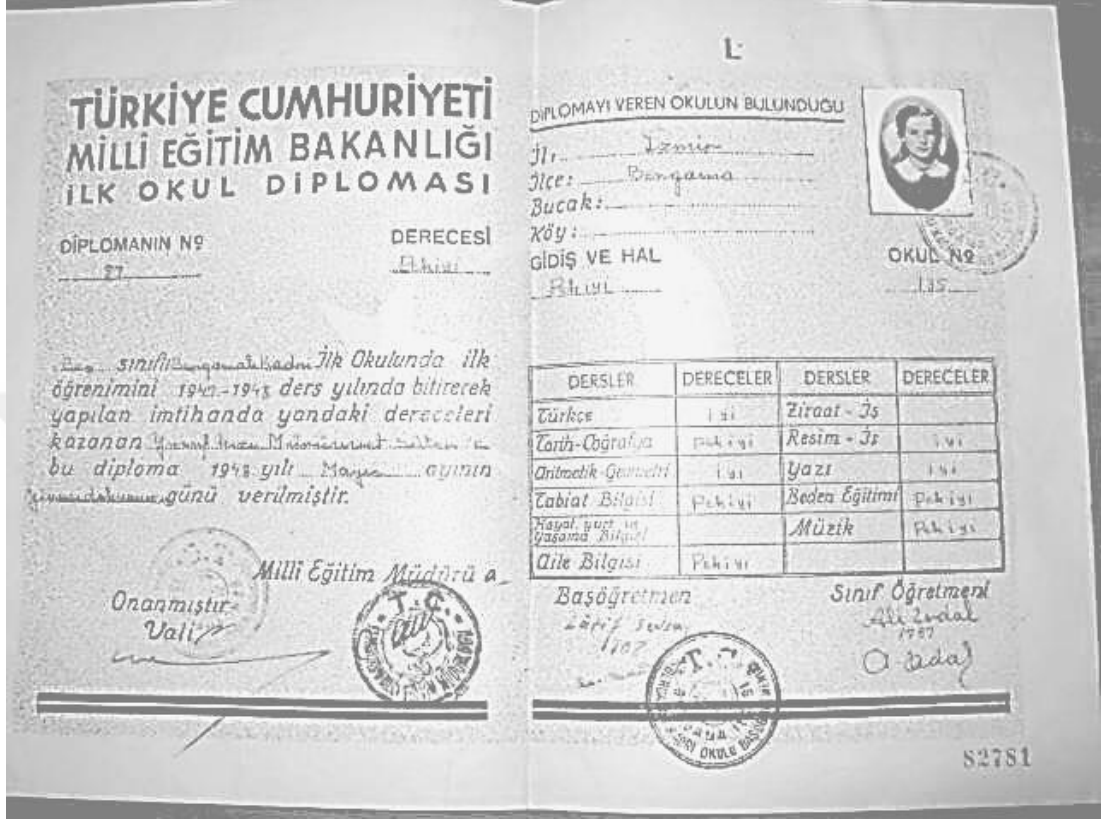 TÜRKİYE CUMHURİYETİ
MİLLİ EĞİTİM BAKANLIĞI
İLK OKUL DİPLOMASI
DİPLOMANIN Nº
DERECESİ
87
Pekiyi
sınıflı Kadri İlk Okulunda ilk
öğrenimini 1947-1948 ders yılında bitirerek
yapılan imtihanda yandaki dereceleri
kazanan
bu diploma 1948 yılı Mayıs ayının
günü verilmiştir.
Milli Eğitim Müdürü a.
Onanmıştır
Vali
T.C.
DİPLOMAYI VEREN OKULUN BULUNDUĞU
İli: İzmir
İlçe: Bergama
Bucak:
Köy:
GİDİŞ VE HAL
OKUL Nº
Pekiyi
135
DERSLER DERECELER DERSLER DERECELER
Türkçe iyi Ziraat - İş
Tarih-Coğrafya pekiyi Resim - İş iyi
Aritmetik-Geometri iyi Yazı iyi
Tabiat Bilgisi Pekiyi Beden Eğitimi Pekiyi
Müzik Pekiyi
Aile Bilgisi Pekiyi
Başöğretmen
Sınıf Öğretmeni
T.C.
82781